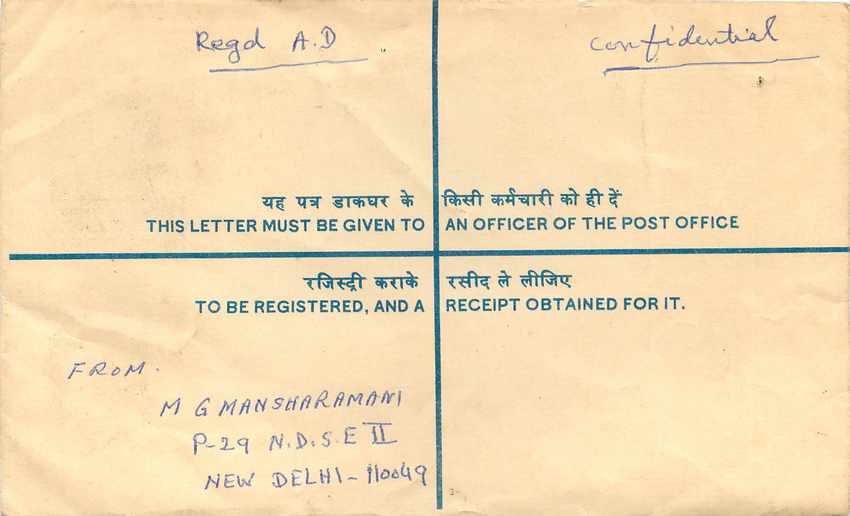 Regd A.D
Confidential
यह पत्र डाकघर के किसी कर्मचारी को ही दें
THIS LETTER MUST BE GIVEN TO AN OFFICER OF THE POST OFFICE
रजिस्ट्री कराके रसीद ले लीजिए
TO BE REGISTERED, AND A RECEIPT OBTAINED FOR IT.
FROM.
M G MANSHARAMANI
P-29 N.D.S.E II
NEW DELHI - 110049